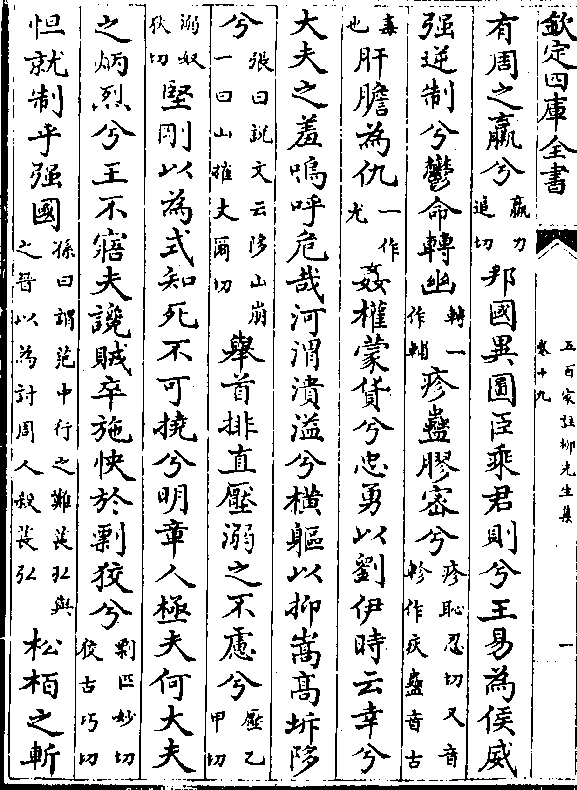 欽定四庫全書
五百家註柳先生集
卷十九
一
有周之羸兮羸力追切邦國異圖臣乘君則兮王易為侯威
强逆制兮鬱命轉幽轉一作疹蠱膠密兮疹恥忍切又音軫作疢蠱音古
毒也肝膽為仇一作尤姦權蒙貨兮忠勇以劉伊時云幸兮
大夫之羞嗚呼危哉河渭潰溢兮横軀以抑嵩高坼陊
兮張曰説文云陊山崩一曰山摧丈爾切舉首排直壓溺之不慮兮壓乙甲切
溺奴狄切堅剛以為式知死不可撓兮明章人極夫何大夫
之炳烈兮王不寤夫讒賊卒施快於剽狡兮剽匹妙切狡古巧切
怛就制乎强國孫曰謂范中行之難萇弘與之晉以為討周人殺萇弘松栢之斬